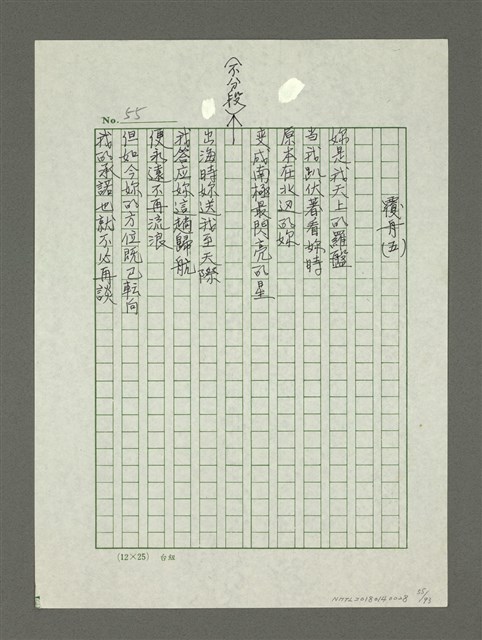 (不分段)
No. 55
覆舟(五)
妳是我天上的羅盤
當我趴伏著看妳時
原本在北边的妳
变成南極最閃亮的星
出海時妳送我至天際
我答应妳這趟歸航
便永遠不再流浪
但如今妳的方位既已転向
我的承諾也就不必再談
(12×25) 台組
NMTL20180140008
55/93